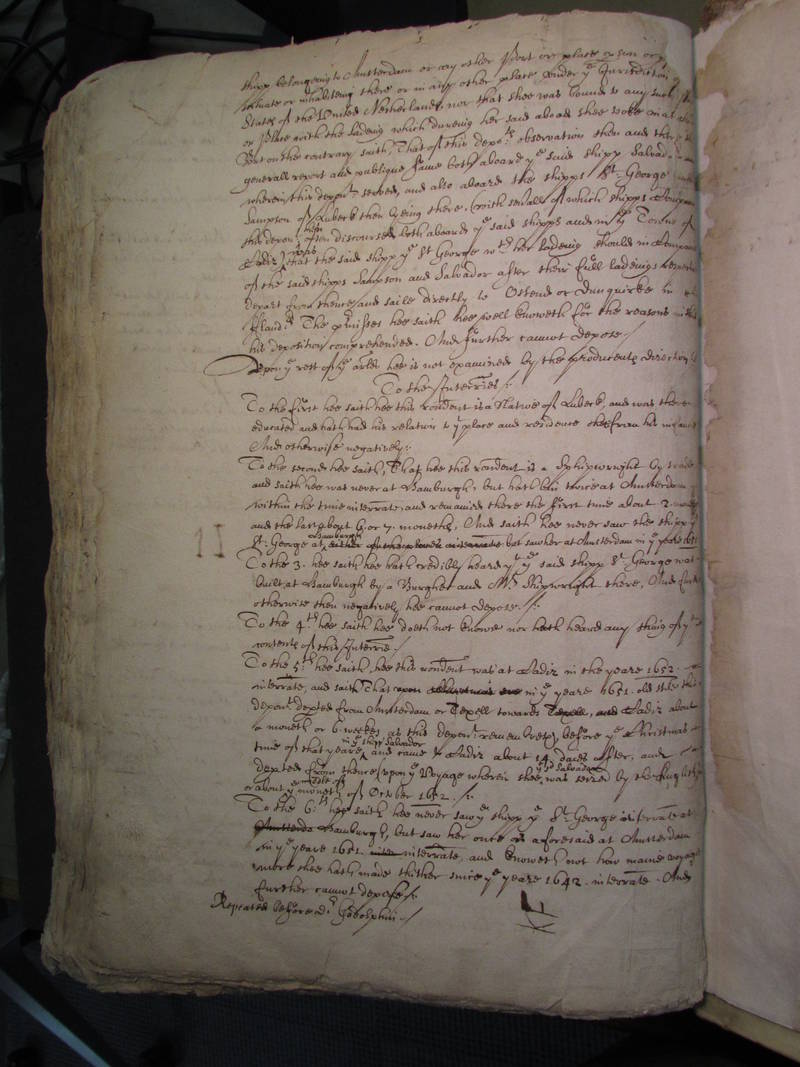 shipp belonging to Amsterdam or any other Port or place or
scituate or inhabiting there or in any other place under ye Jurisdiction
States of the United Netherlands, nor that shee was bound to any such
or place with the lading which dureing her said aboad shee tooke in at
But on the contrary saith, That of this depots observation then and there
generall report and publique fame both aboard ye said shipp Salvador
wherein this depont served, and also aboard the shipps St. George
Sampson of Lubeck then lyeing there, (with all of which shipps Companyes
this depont then often discoursed both aboard ye said shipps and in ye Towne of
Cadiz) that the said shipp ye St George wth her lading should in Company
of the said shipps Sampson and Salvador after their full ladings
depart from thence and saile directly to Ostend or Dunquirke in
Flandrs The pmisses hee saith hee well knoweth for the reasons in this
his deposition comprehended. And further cannot depose./
Upon ye rest of ye arles hee is not examined by the producents direction
To the Interries /:
To the first hee saith hee this rondent is a Native of Lubeck, and was there
educated and hath had his relation to yt place and residence there from his infancie
And otherwise negatively:
To the second hee saith, That hee this rondent is a Shipwright by trade
and saith hee was never at Hamburgh, but hath bin twice at Amsterdam
within the time interrate, and remained there the first time about 2 moneths
and the last about 6. or 7. moneths, And saith hee never saw the shipp ye
St. George at Hamburgh but saw her at Amsterdam in ye yeare 1651
To the 3. hee saith hee hath credibly heard yt ye said shipp St. George was
built at Hamburgh by a Burgher and Mr. Shipwright there, And
otherwise then negatively hee cannot depose./:
To the 4th hee saith hee doeth not knowe nor hath heard any thing of ye
contents of this Interrie /
To the 5th hee saith, hee this rondent was at Cadiz in the yeare 1652.
interrate, and saith That in ye yeare 1651. old stile this
depont depted from Amsterdam or Texell towards Cadiz about
a moneth or 6. weekes as this depont remembreth before ye Christmas
time of that yeare in ye shipp Salvador and came to Cadiz about 14 dayes after, and
depted from thence upon ye Voyage wherein shee ye sd Salvador was seized by the English
or about ye middle of ye moneth of October 1652. /:
To the 6th hee saith hee never saw ye shipp ye St. George interrate at
Amsterda Hamburgh, but saw her once as aforesaid at Amsterdam
in ye yeare 1651 interrate, and knoweth not how manie voyages
more shee hath made thither since ye yeare 1642. interrate. And
further cannot depose /:
Repeated before dr Godolphin /